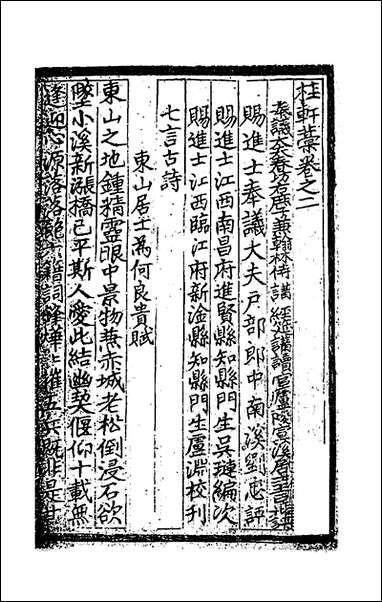 桂軒藁卷之二
奉議大夫春坊右庶子兼翰林侍講經筵講讀官廬陵
賜進士奉議大夫戶部郎中南溪劉忠評
賜進士江西南昌府進賢縣知縣門生吳璉編次
賜進士江西臨江府新淦縣知縣門生盧淵校刊
七言古詩
東山居士為何良貴賦
東山之地鍾精靈眼中景物兼赤城老松倒浸石欲
墜小溪新漲橋已平斯人愛此結幽契偃仰十載無
逢迎心源落落籍詞鋒燁燁摧五兵既非是